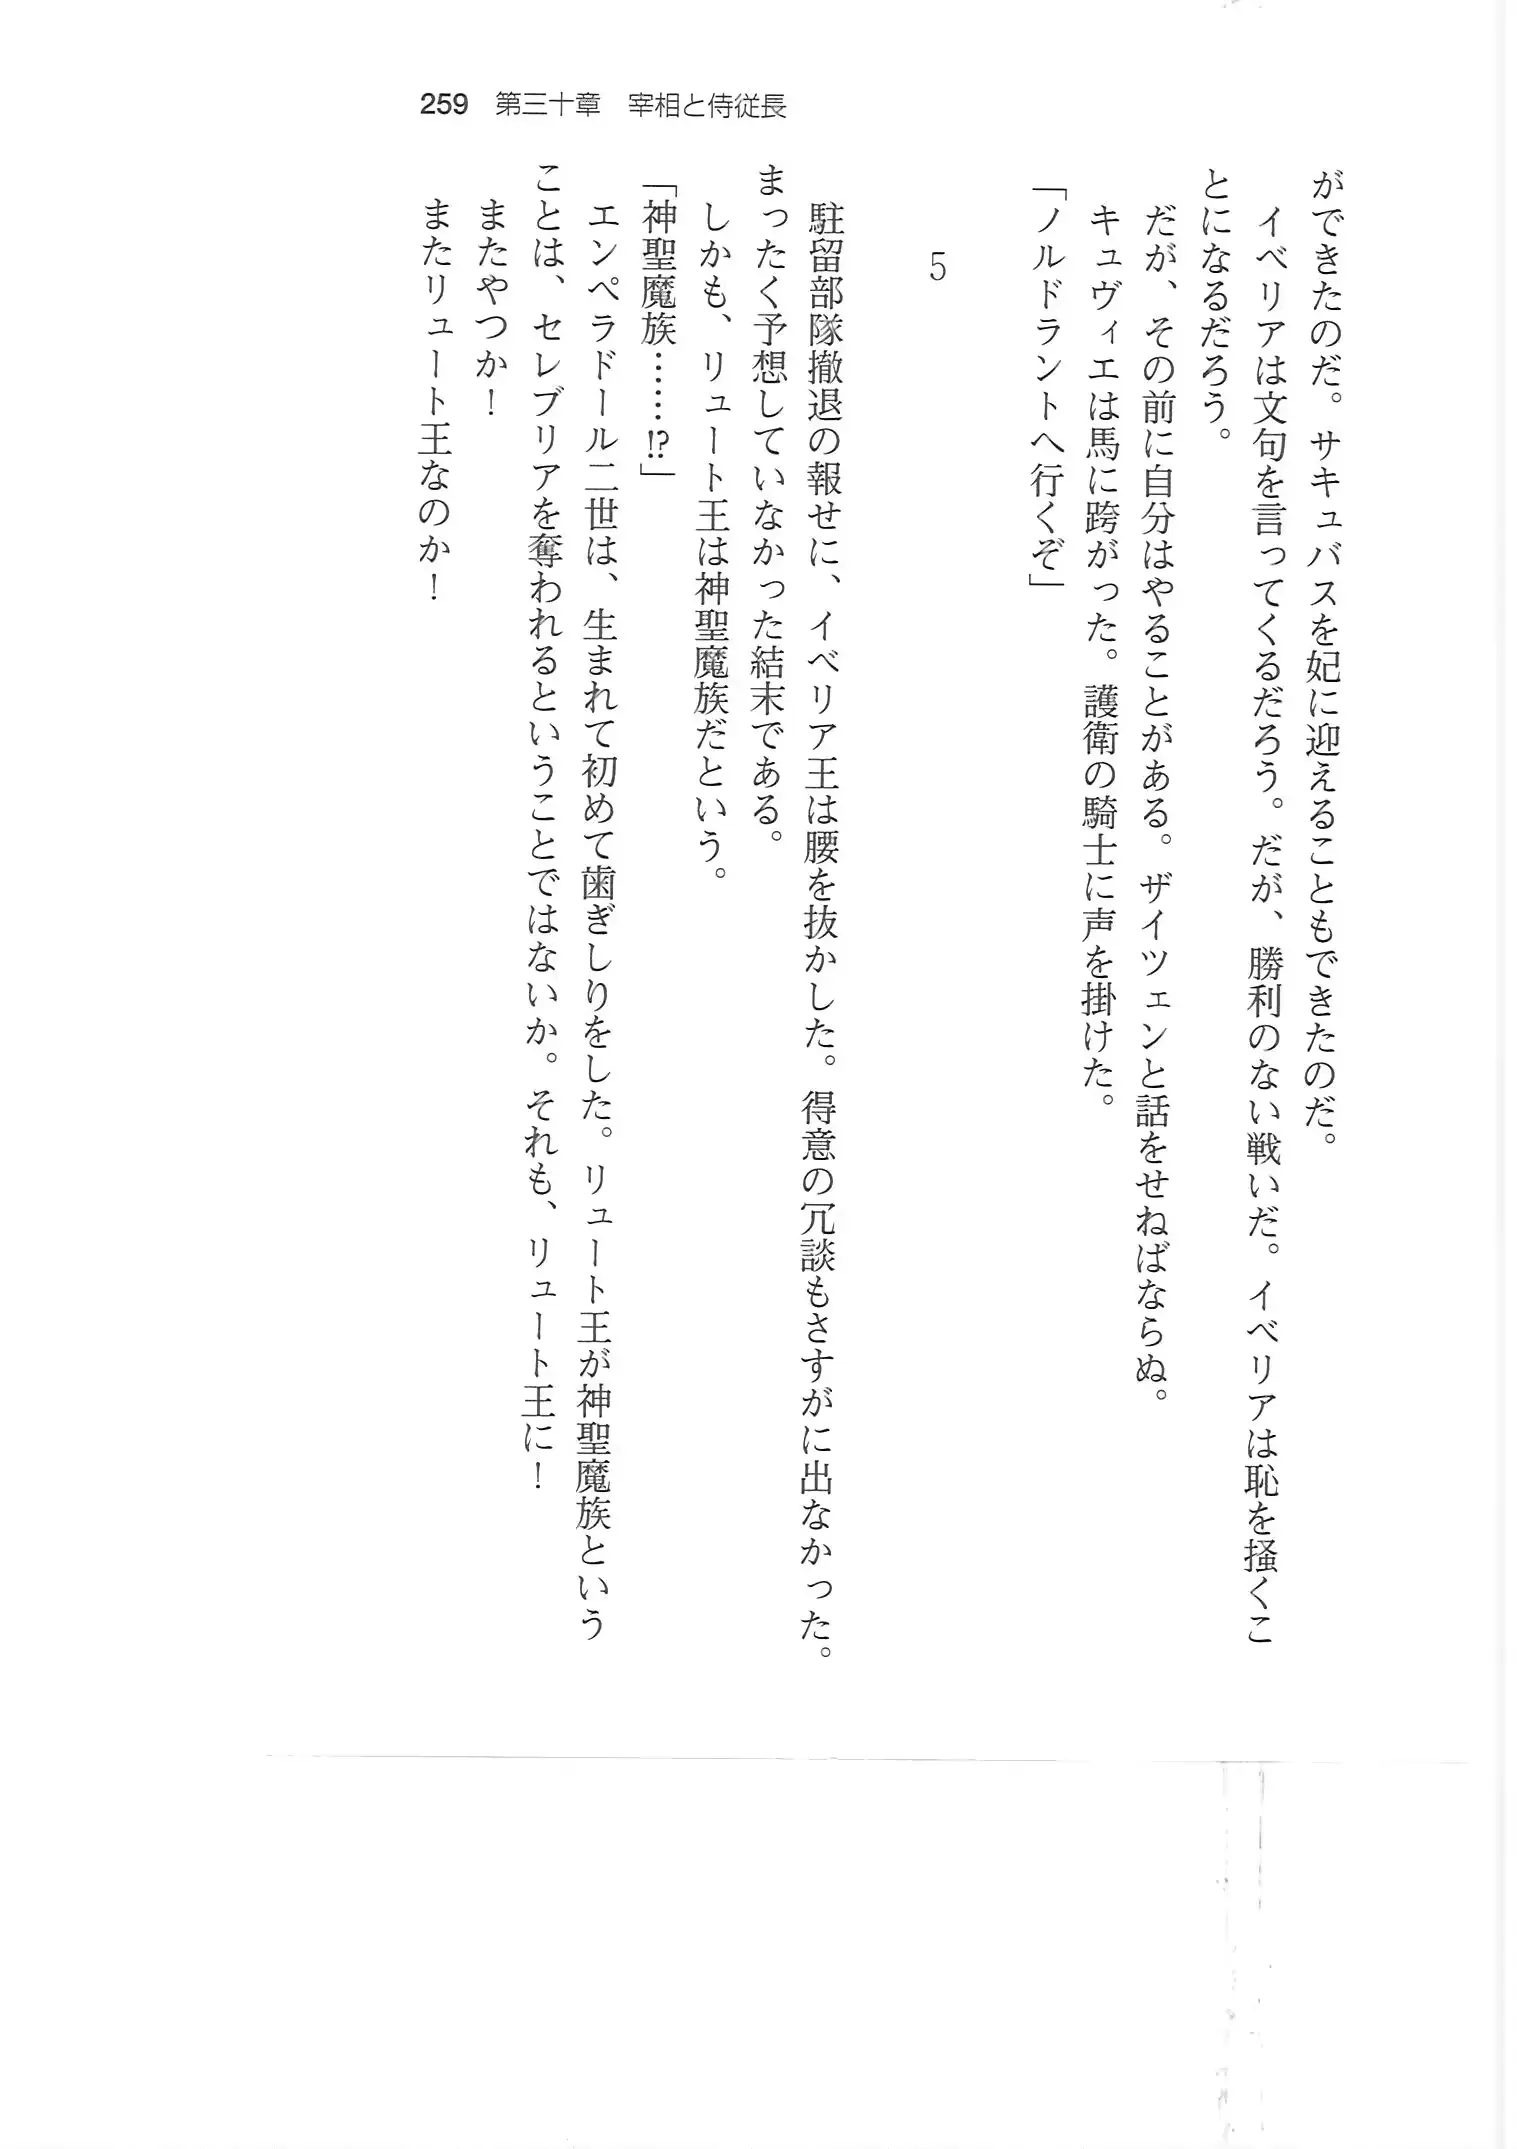 259　第三十章　宰相と侍従長
ができたのだ。サキュバスを妃に迎えることもできたのだ。
　イベリアは文句を言ってくるだろう。だが、勝利のない戦いだ。イベリアは恥を掻くこ
とになるだろう。
　だが、その前に自分はやることがある。ザイツェンと話をせねばならぬ。
　キュヴィエは馬に跨がった。護衛の騎士に声を掛けた。
「ノルドラントへ行くぞ」
5
　駐留部隊撤退の報せに、イベリア王は腰を抜かした。得意の冗談もさすがに出なかった。
まったく予想していなかった結末である。
　しかも、リュート王は神聖魔族だという。
「神聖魔族……⁉」
　エンペラドール二世は、生まれて初めて歯ぎしりをした。リュート王が神聖魔族という
ことは、セレブリアを奪われるということではないか。それも、リュート王に！
　またやつか！
　またリュート王なのか！